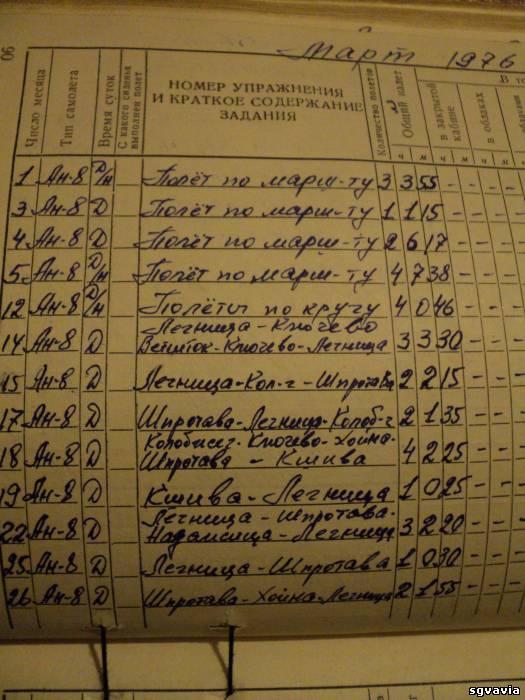 90
Март 1976
Число месяца
Тип самолета
Время суток
С какого сиденья выполнен полет
НОМЕР УПРАЖНЕНИЯ
И КРАТКОЕ СОДЕРЖАНИЕ
ЗАДАНИЯ
Количество полетов
Общий налет
В то
в закрытой кабине
в облаках
ч м ч м ч
1 Ан-8 Д/Н Полёт по марш-ту 3 3 55 - - - -
3 Ан-8 Д Полёт по марш-ту 1 1 15 - - - -
4 Ан-8 Д Полёт по марш-ту 2 6 17 - - - -
5 Ан-8 Д/Н Полёт по марш-ту 4 7 38 - - - -
12 Ан-8 Д/Н Полёты по кругу 4 0 46 - - - -
Легница-Ключево
14 Ан-8 Д Ключево-Легница 3 3 30 - - - -
15 Ан-8 Д Легница-Кол-г-Шпротава 2 2 15 - - - -
17 Ан-8 Д Шпротава-Легница-Колоб-г 2 1 35 - - - -
Ключево-Хойна-
18 Ан-8 Д Шпротава-Кшива 4 2 25 - - - -
19 Ан-8 Д Кшива-Легница 1 0 25 - - - -
Легница-Шпротава-
22 Ан-8 Д Легница 3 2 20 - - - -
25 Ан-8 Д Легница-Шпротава 1 0 30 - - - -
26 Ан-8 Д Шпротава-Хойна-Легница 2 1 55 - - - -
sgvavia